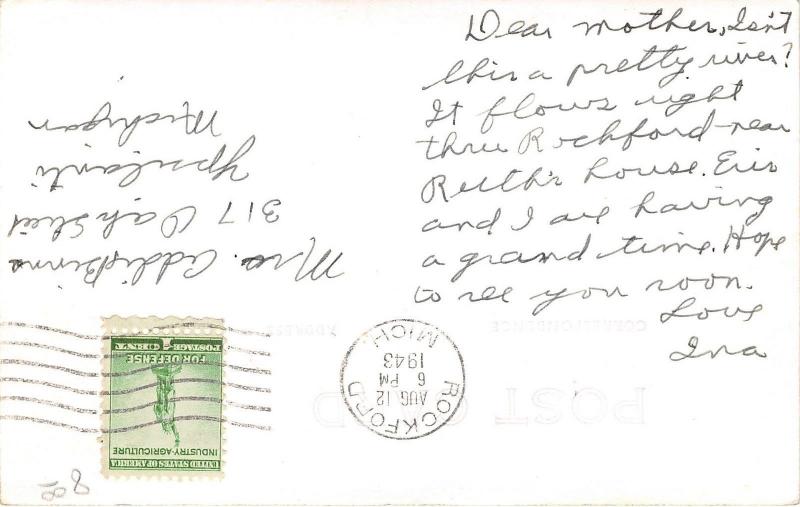 Dear mother, Isn't
this a pretty river?
It flows right
thru Rockford-near
Ruth's house. Eris
and I are having
a grand time. Hope
to see you soon.
Love
Iva
Mrs. Addie Binns
317 Oak Street
Ypsilanti
Michigan
ROCKFORD
AUG 12
6 PM
1943
MICH.
UNITED STATES OF AMERICA
INDUSTRY-AGRICULTURE
FOR DEFENSE
1 CENT
POSTAGE
POST CARD
CORRESPONDENCE
ADDRESS